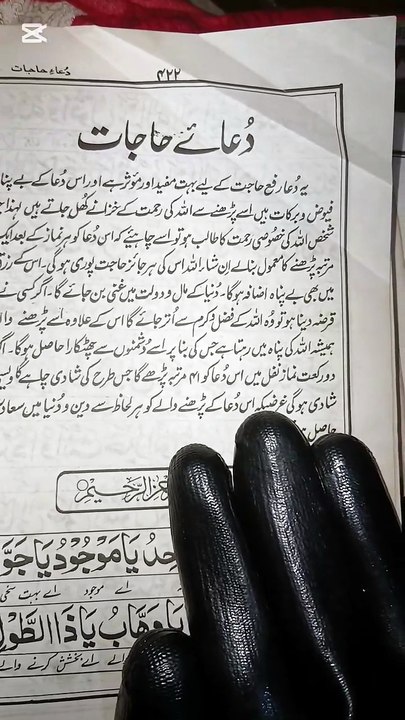 دُعاءِ حاجات
۴۲۲
دُعائے حاجات
یہ دُعا رفع حاجت کے لیے بہت مفید اور مؤثر ہے اور اس دُعا کے بے پنا
فیوض و برکات ہیں اسے پڑھنے سے اللہ کی رحمت کے خزانے کھل جاتے ہیں لہٰذا
شخص اللہ کی خصوصی رحمت کا طالب ہو تو اسے چاہیئے کہ اس دُعا کو ہر نماز کے بعد ایک
مرتبہ پڑھنے کا معمول بنالے اِن شار اللہ اس کی ہر جائز حاجت پوری ہوگی۔ اس کے رزق
میں بھی بے پناہ اضافہ ہوگا۔ دُنیا کے مال و دولت میں غنی بن جائے گا۔ اگر کسی نے
قرضہ دینا ہو تو وُہ اللہ کے فضل و کرم سے اُتر جائے گا اس کے علاوہ اسے پڑھنے والا
ہمیشہ اللہ کی پناہ میں رہتا ہے جس کی بنا پر اسے دُشمنوں سے چھٹکارا حاصل ہوگا۔
دو رکعت نماز نفل میں اس دُعا کو ۴۱ مرتبہ پڑھے گا جس طرح کی شادی چاہے گا
شادی ہوگی غرضیکہ اس دُعا کے پڑھنے والے کو ہر لحاظ سے دین و دُنیا میں
حاصل
الرَّحِيْمِ
يَا مَوْجُوْدُ يَا
اے موجود اے بہت سخی
يَا وَهَّابُ يَا ذَا الطَّوْلِ
اے بخشش کرنے والے